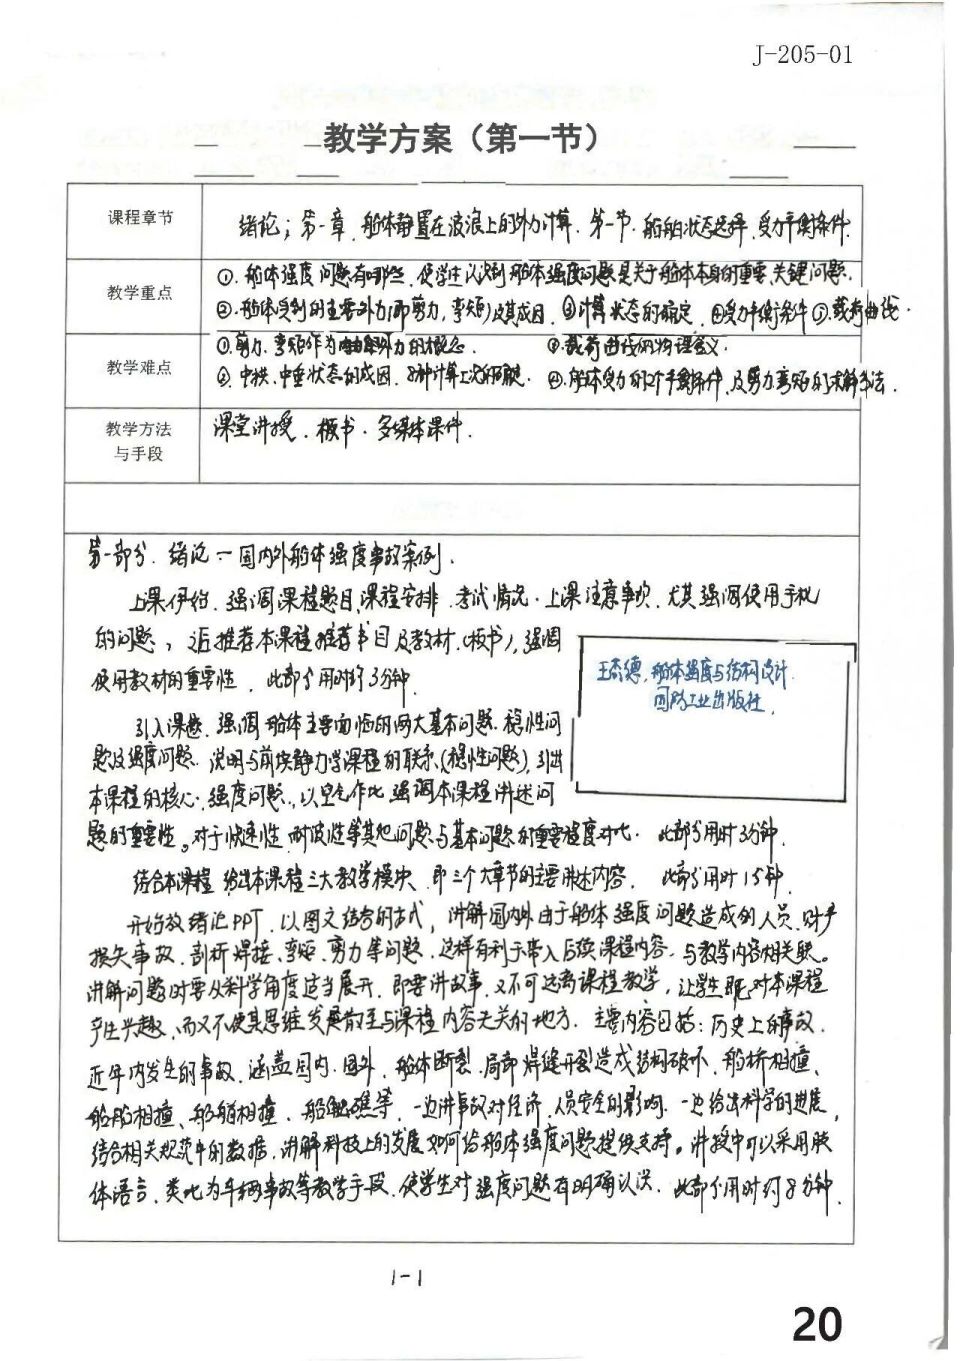 J-205-01
教学方案（第一节）
课程章节
绪论；第一章 船体静置在波浪上的外力计算 第一节 船舶状态选择，受力平衡条件
教学重点
①. 船体强度问题有哪些，使学生认识到船体强度问题是关于船体本身的重要、关键问题.
②. 船体受到的主要外力(即剪力，弯矩)及其成因. ③计算状态的确定. ④受力平衡条件 ⑤载荷曲线.
教学难点
①剪力、弯矩作为 外力的概念. ③载荷曲线的物理含义.
②. 中拱、中垂状态的成因. 计算上 ④. 船体受力的2个平衡条件，及剪力弯矩的求解方法.
教学方法
与手段
课堂讲授、板书、多媒体课件.
第一部分. 绪论一国内外船体强度事故案例.
上课伊始，强调课程题目，课程安排，考试情况，上课注意事项，尤其强调使用手机
的问题， 推荐本课程推荐书目及教材.(板书)，强调
使用教材的重要性. 此部分用时约3分钟.
王杰德，船体强度与结构设计
国防工业出版社.
引入课题，强调船体主要面临的两大基本问题，稳性问
题及强度问题. 说明与前续静力学课程的联系(稳性问题)，引出
本课程的核心，强度问题，以 作比 强调本课程讲述问
题的重要性。对于快速性，耐波性等其他问题与基本问题的重要程度对比. 此部分用时3分钟.
结合本课程 给出本课程三大教学模块，即三个大章节的主要讲述内容. 此部分用时1分钟.
开始放绪论PPT，以图文结合的方式，讲解国内外由于船体强度问题造成的人员、财产
损失事故. 剖析焊接、弯矩、剪力等问题，这样有利于带入后续课程内容，与教学内容相关联。
讲解问题时要从科学角度适当展开，即要讲故事，又不可远离课程教学，让学生既对本课程
产生兴趣，而又不使其思维发展散至与课程内容无关的地方. 主要内容包括：历史上的事故，
近年内发生的事故，涵盖国内、国外，船体断裂，局部焊缝开裂造成结构破坏，船桥相撞、
船舶相撞、船舶相撞、船触礁等，一边讲事故对经济、人员安全的影响，一边给出科学的进展，
结合相关规范中的数据，讲解科技上的发展如何给船体强度问题提供支持。讲授中可以采用肢
体语言、类比为车辆事故等教学手段，使学生对强度问题有明确认识. 此部分用时约8分钟.
1-1
20